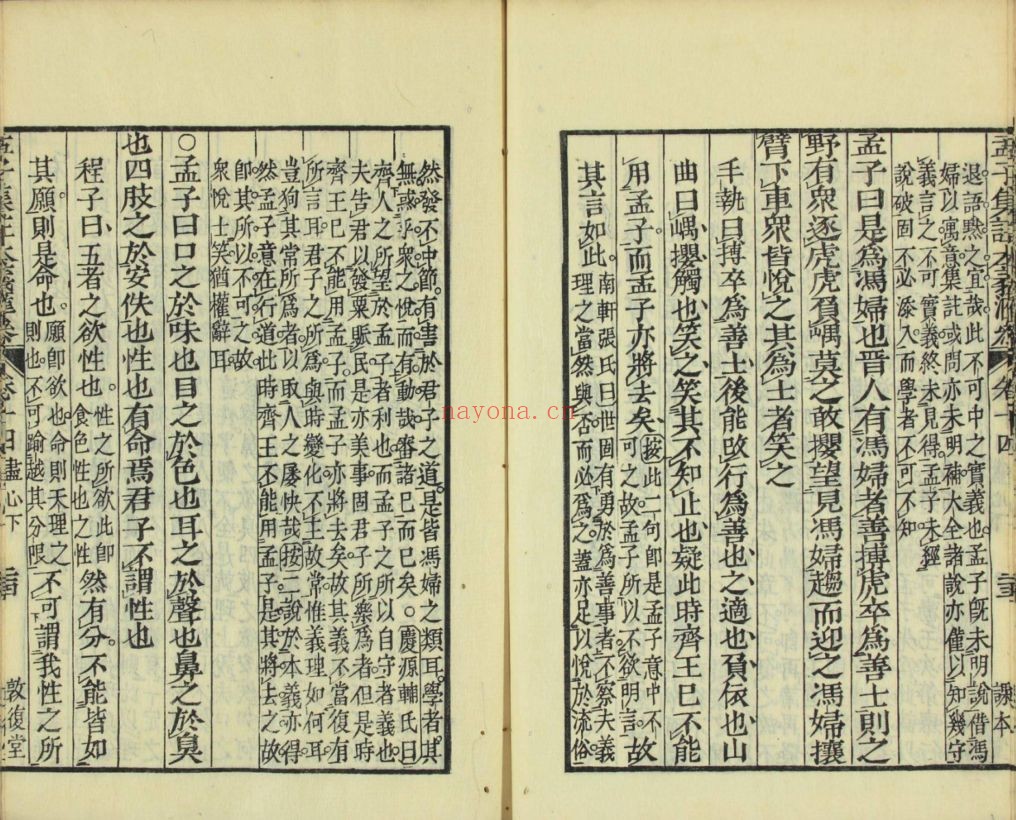 退語默之宜哉此不可中之實義也孟子旣未明說借馮
婦以寓意集註或問亦未明補大全諸說亦僅以知幾守
義言之不可實義終未見得孟子未經
說破固不必添入而學者不可不知
孟子曰是爲馮婦也晉人有馮婦者善搏虎卒爲善士則之
野有衆逐虎虎負嵎莫之敢攖望見馮婦趨而迎之馮婦攘
臂下車衆皆悅之其爲士者笑之
手執曰搏卒爲善士後能改行爲善也之適也負依也山
曲曰嵎攖觸也笑之笑其不知止也疑此時齊王已不能
用孟子而孟子亦將去矣按此二句卽是孟子意中不可之故孟子所以不欲明言故
其言如此南軒張氏曰世固有勇於爲善事者不察夫義理之當然與否而必爲之蓋亦足以悅於流俗
然發不中節有害於君子之道是皆馮婦之類耳學者其
無惑乎衆之悅而有動哉審諸已而已矣○慶源輔氏曰
齊人之所望於孟子者利也而孟子之所以自守者義也
夫告君以發粟賑民是亦美事固君子所樂爲者但是時
齊王已不能用孟子而孟子亦將去矣故其義不當復有
所言耳君子之所爲與時變化不主故常惟義理如何耳
豈狥其常所爲者以取人之屡快哉按二說於本義亦得
然孟子意在行道此時齊王不能用孟子是其將去之故
卽其所以不可之故
衆悅士笑猶權辭耳
○孟子曰口之於味也目之於色也耳之於聲也鼻之於臭
也四肢之於安佚也性也有命焉君子不謂性也
程子曰五者之欲性也性之所欲此卽食色性也之性然有分不能皆如
其願則是命也願卽欲也命則天理之則也不可踰越其分限不可謂我性之所
卷十四
盡心下
課本
敦復堂
nayona.cn